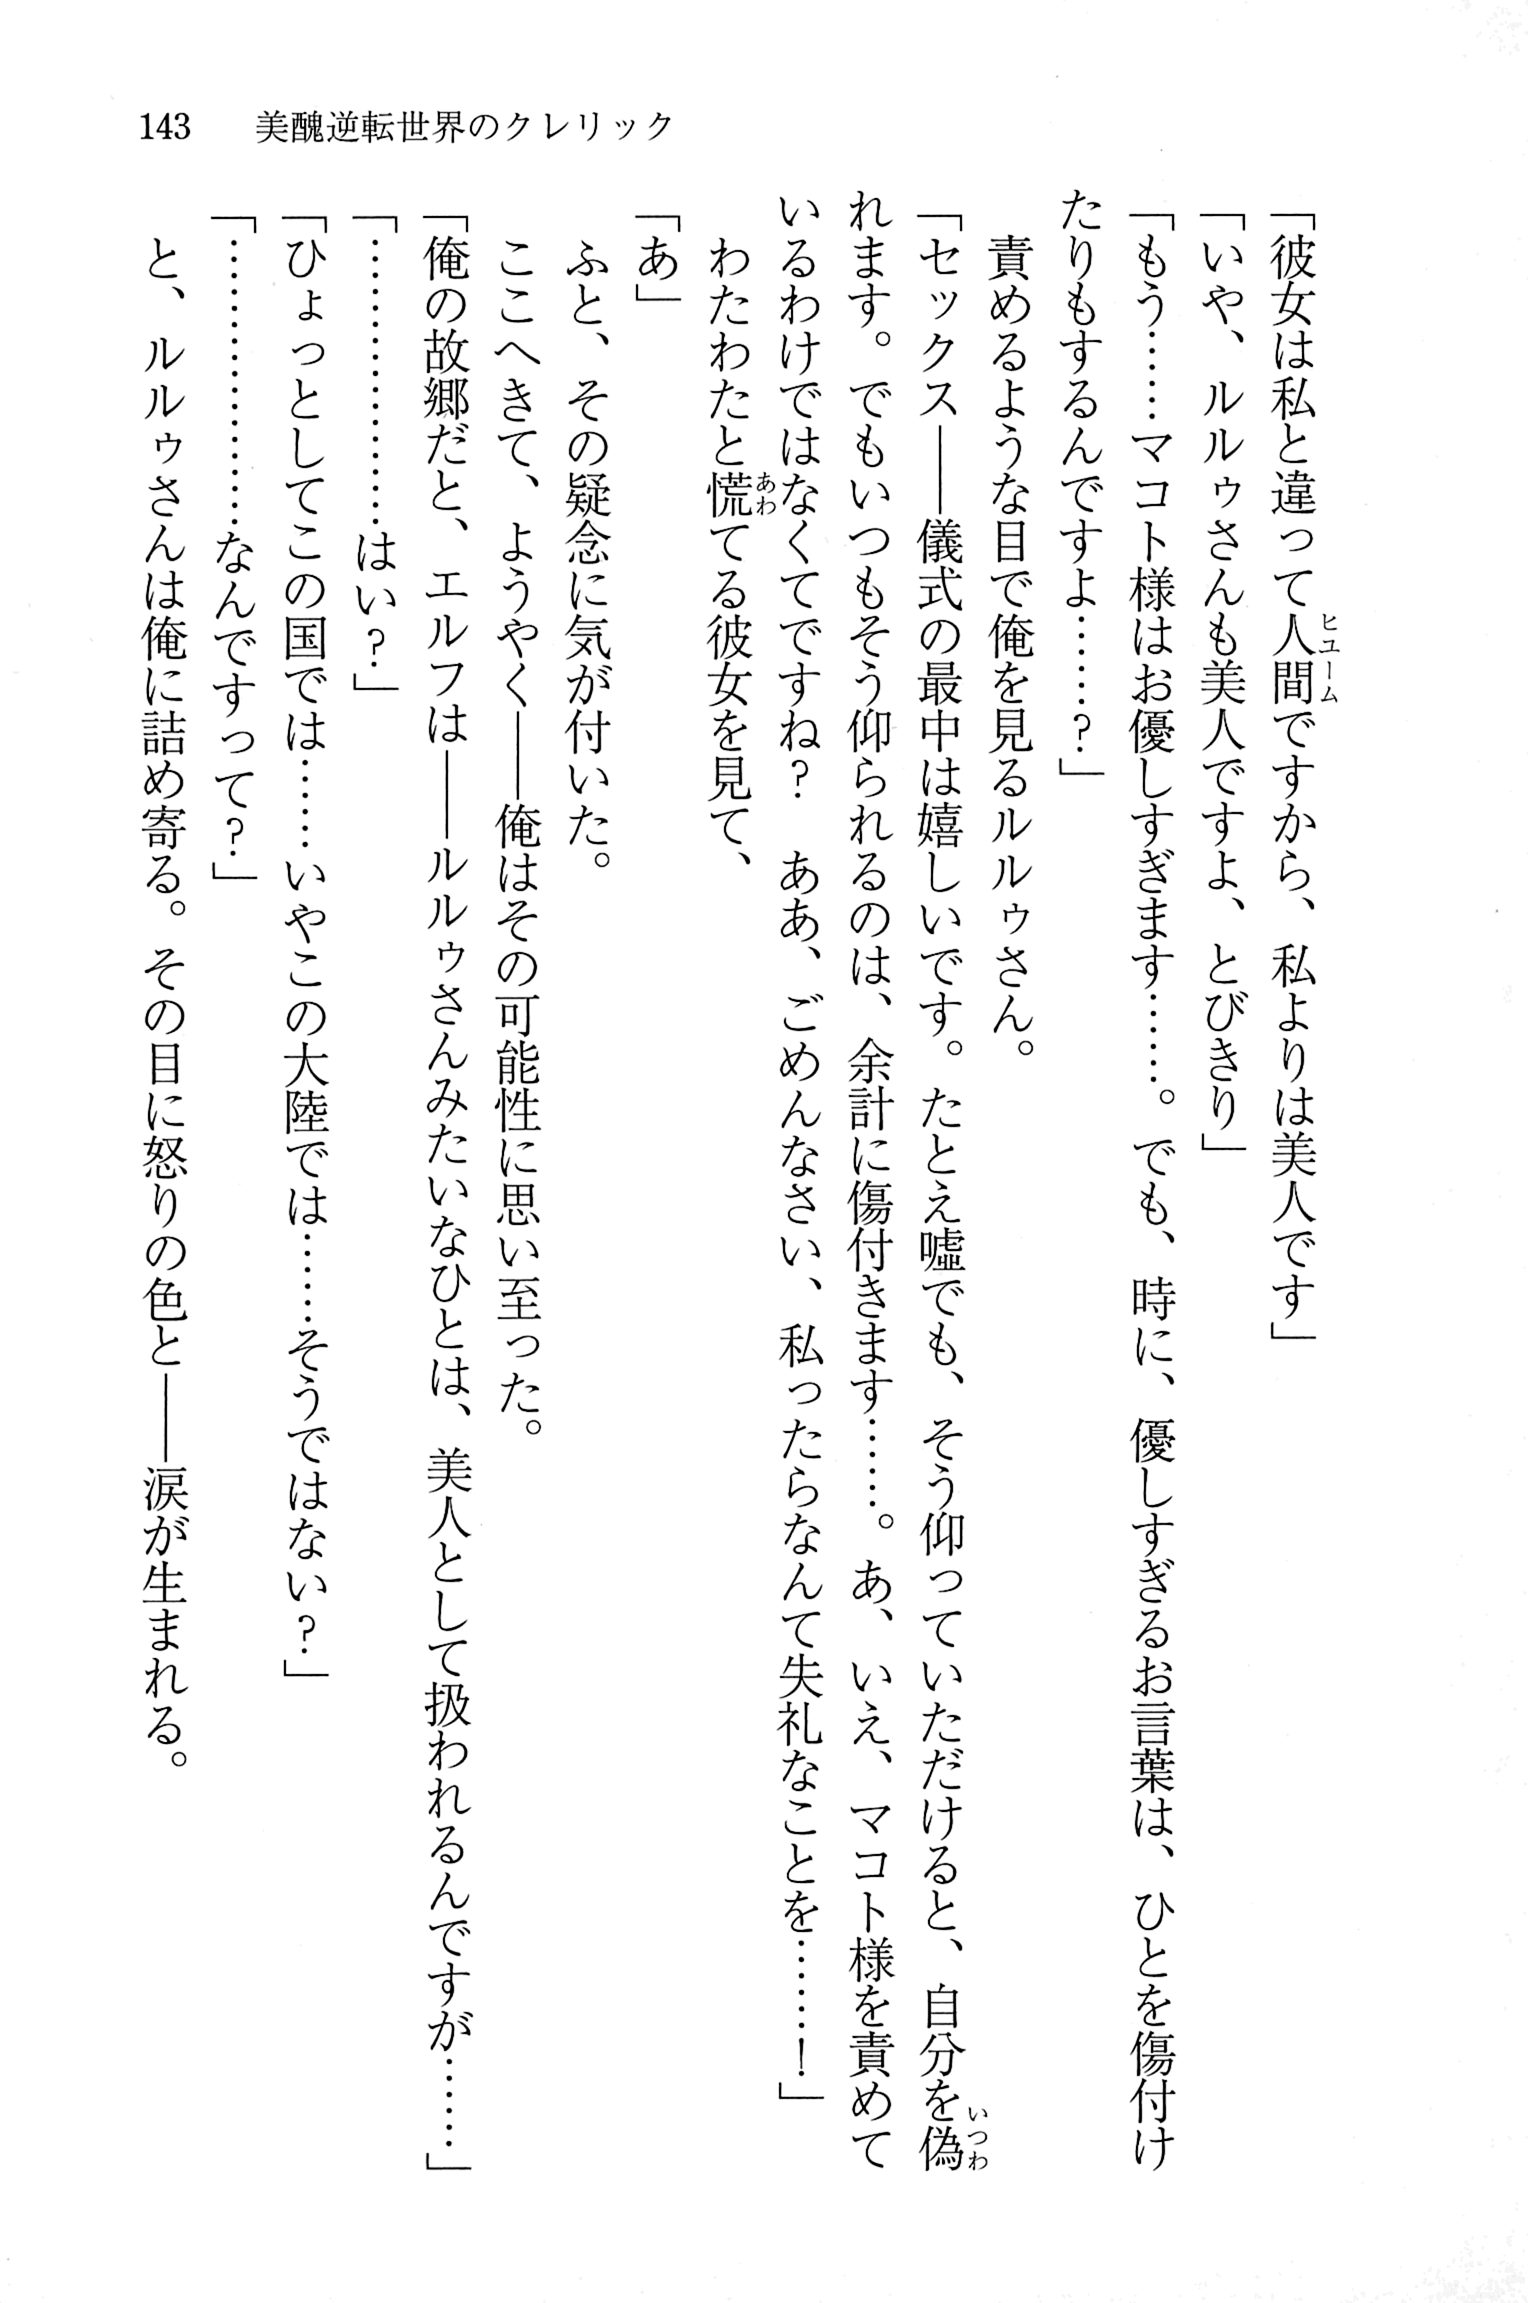 143　美醜逆転世界のクレリック
「彼女は私と違って人間ヒユームですから、私よりは美人です」
「いや、ルルゥさんも美人ですよ、とびきり」
「もう……マコト様はお優しすぎます……。でも、時に、優しすぎるお言葉は、ひとを傷付け
たりもするんですよ……？」
　責めるような目で俺を見るルルゥさん。
「セックス――儀式の最中は嬉しいです。たとえ嘘でも、そう仰っていただけると、自分を偽いつわ
れます。でもいつもそう仰られるのは、余計に傷付きます……。あ、いえ、マコト様を責めて
いるわけではなくてですね？　ああ、ごめんなさい、私ったらなんて失礼なことを……！」
　わたわたと慌あわてる彼女を見て、
「あ」
　ふと、その疑念に気が付いた。
　ここへきて、ようやく――俺はその可能性に思い至った。
「俺の故郷だと、エルフは――ルルゥさんみたいなひとは、美人として扱われるんですが……」
「………………はい？」
「ひょっとしてこの国では……いやこの大陸では……そうではない？」
「………………なんですって？」
　と、ルルゥさんは俺に詰め寄る。その目に怒りの色と――涙が生まれる。